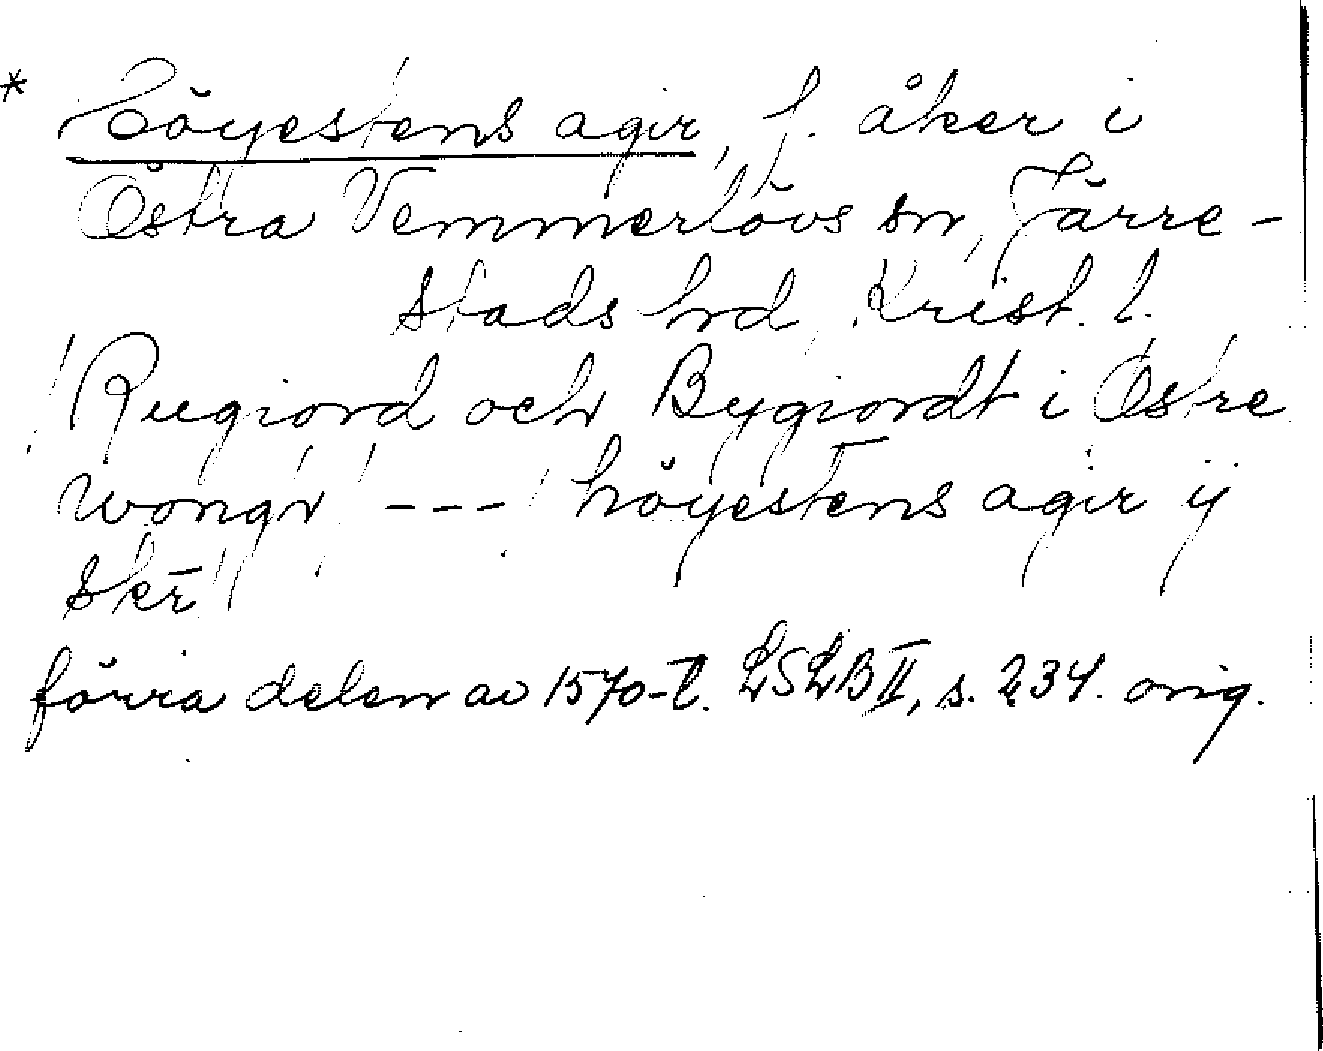 * Höyestens agir, f. åker i
Östra Vemmerlövs sn, Järre-
stads hd, Krist. l.
"Rugiord och Bygiordt i Östre
wongn" --- "höyestens agir ij
sker"
förra delen av 1570-t. LSLB II, s. 234. orig.